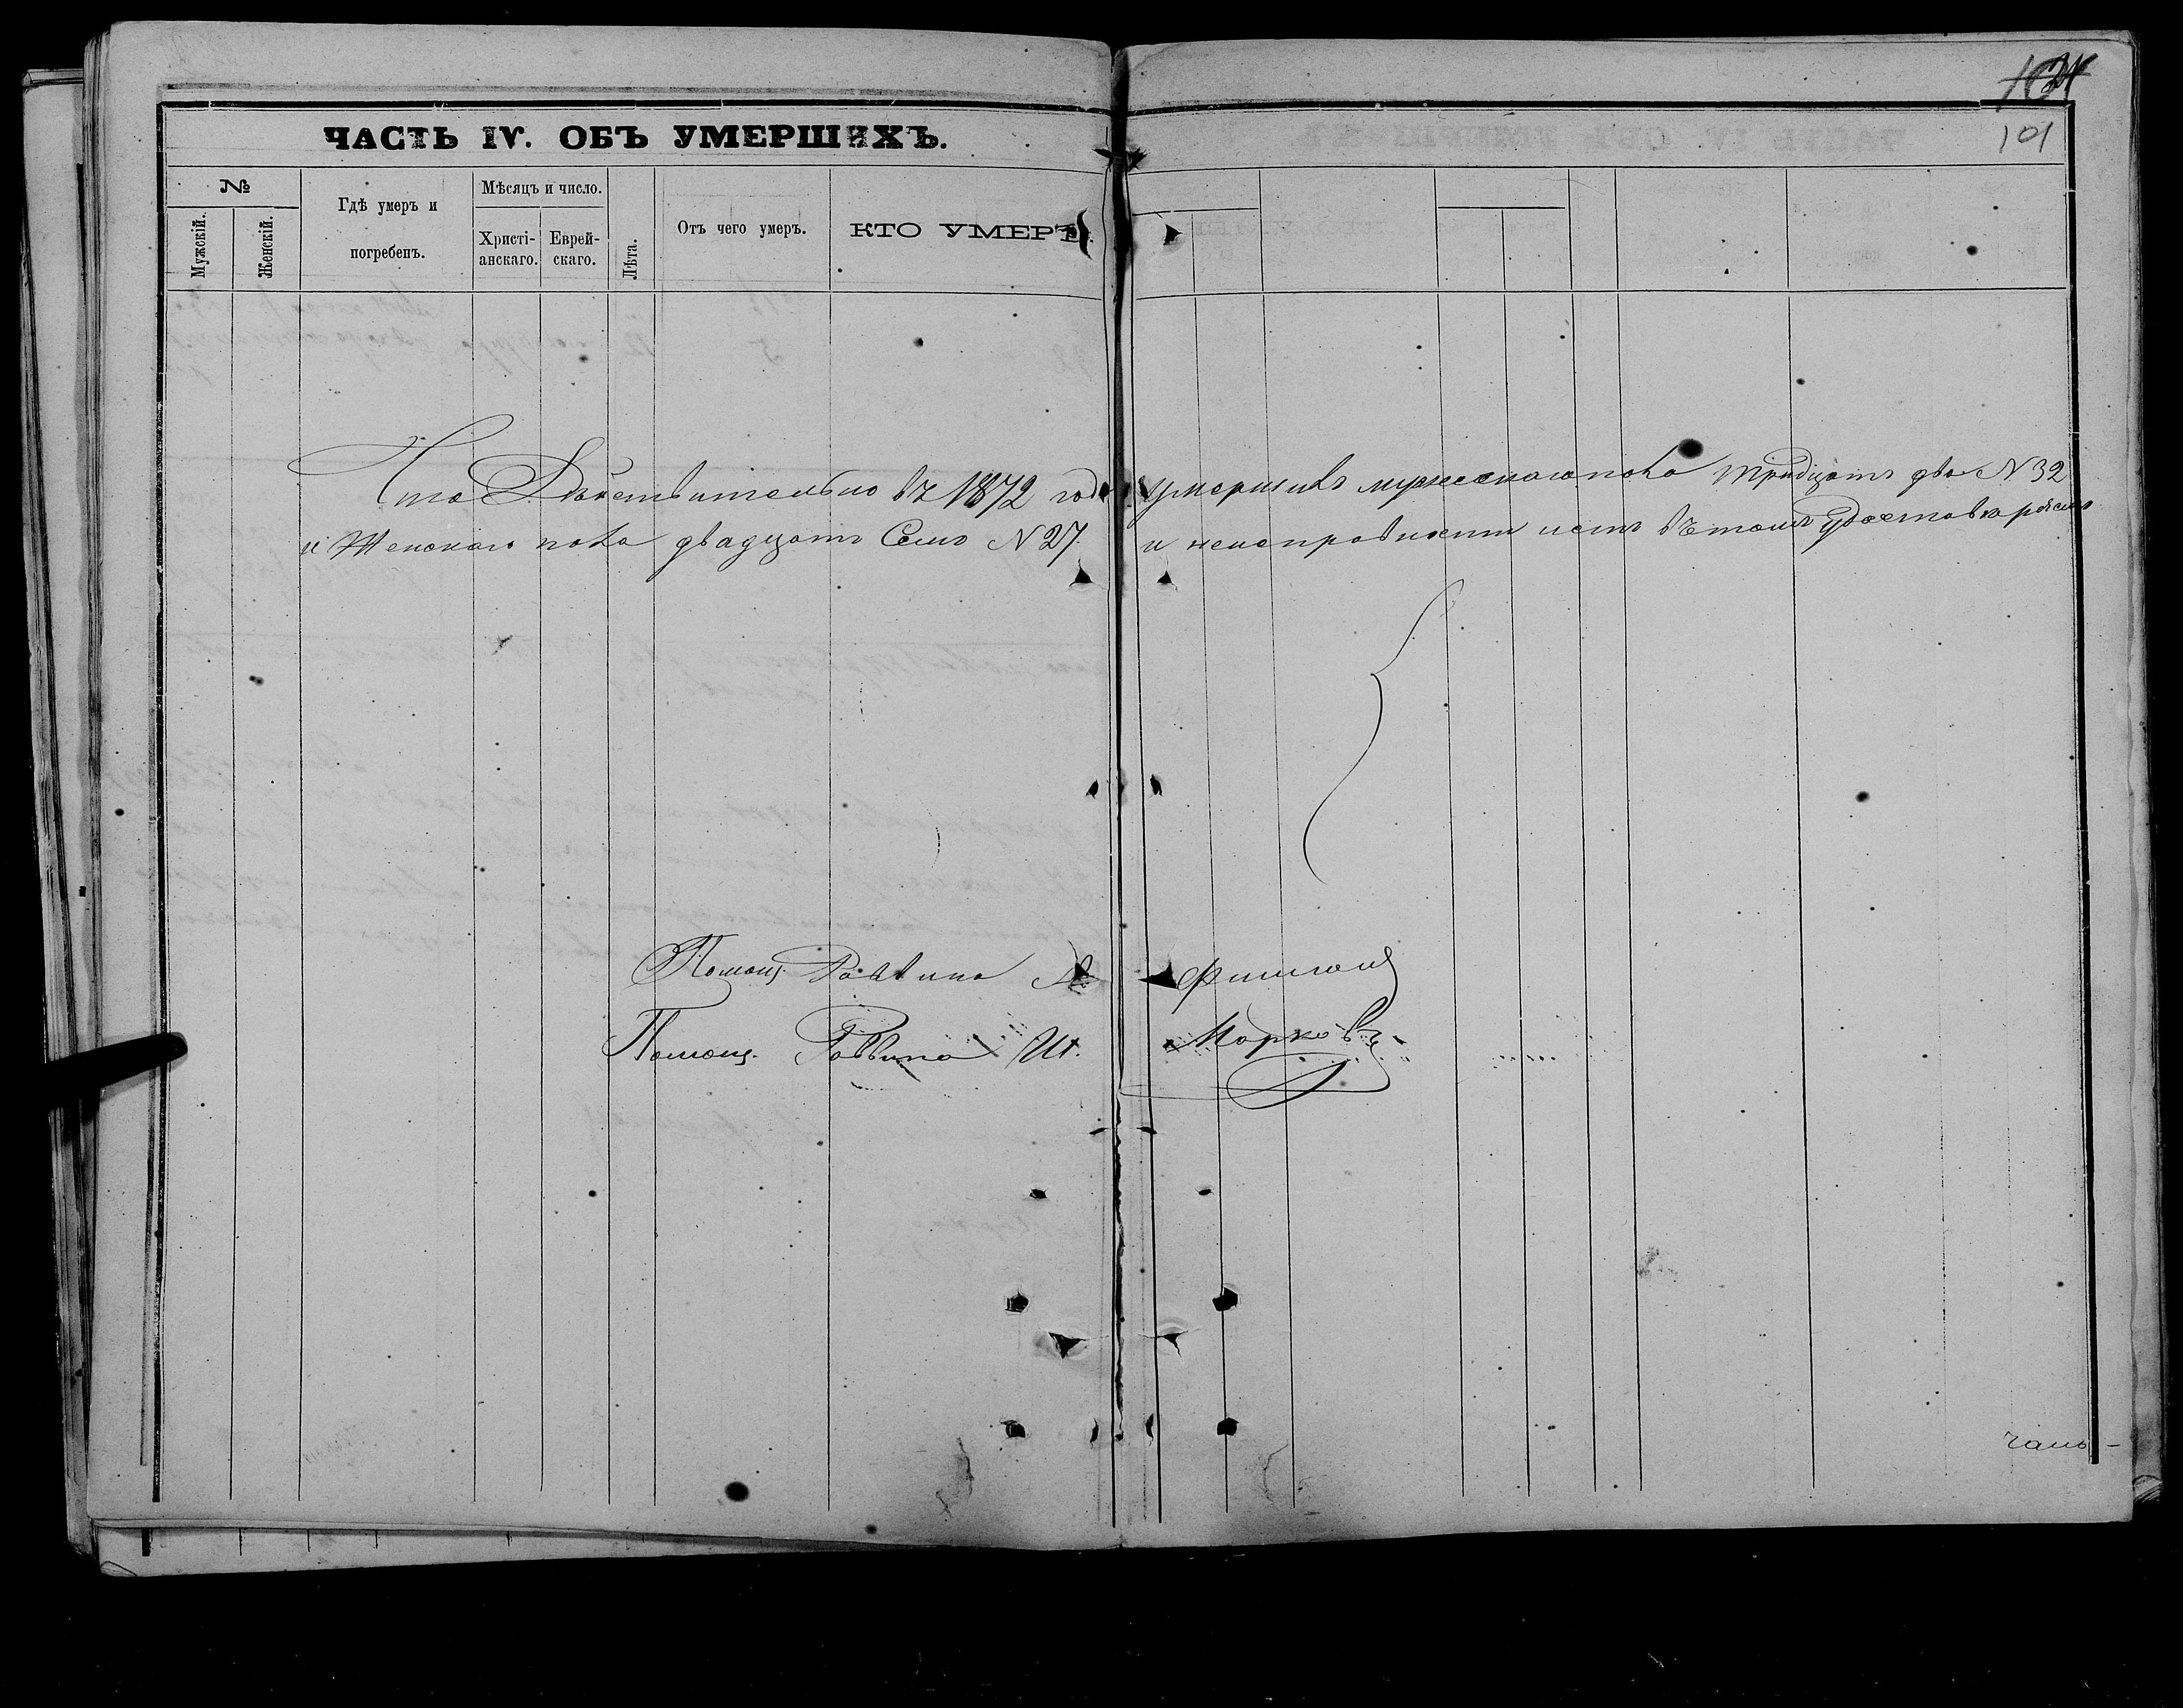 101
ЧАСТЬ IV. ОБЪ УМЕРШИХЪ.
№
Мужскій.
Женскій.
Гдѣ умеръ и
погребенъ.
Мѣсяцъ и число.
Христі-
анскаго.
Еврей-
скаго.
Лѣта.
Отъ чего умеръ.
КТО УМЕРЪ.
Что Действительно въ 1872 году умершихъ мужескаго пола тридцать два N 32
и Женскаго пола двадцать Семь N 27. и неисправности нетъ въ томъ
Помощ. Раввина Фишманъ
Помощ. Раввина И. Марковъ